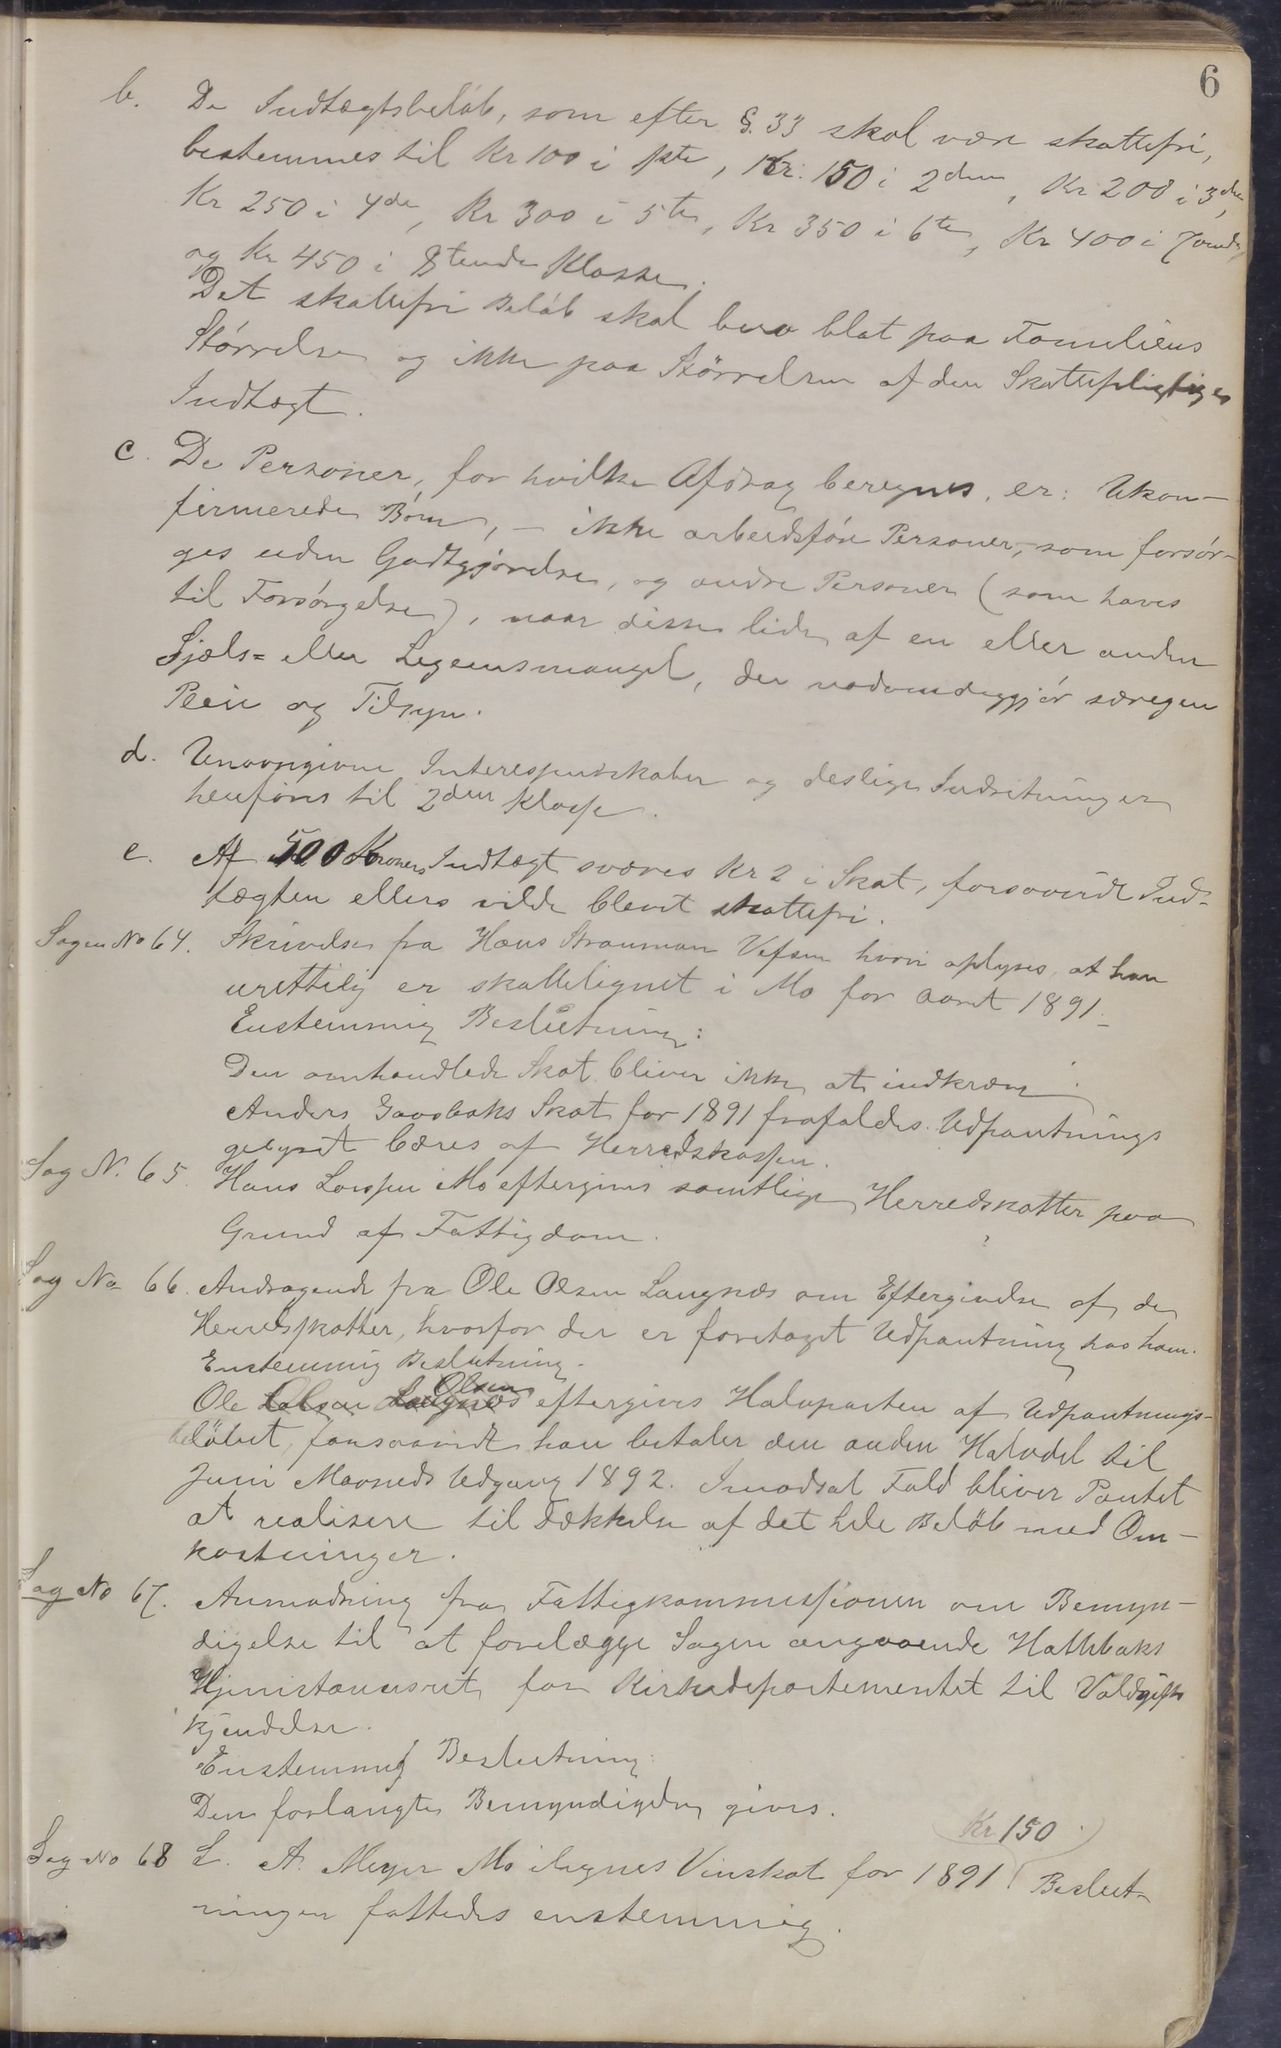 6
b. De Indtægtsbeløb, som efter §. 33 skal være skattefri,
bestemmes til Kr 100 i 1ste, Kr. 150 i 2den, Kr 200 i 3die,
Kr 250 i 4de, Kr 300 i 5te, Kr 350 i 6te, Kr 400 i 7ende,
og Kr 450 i 8tende Klasse.
Det skattefri Beløb skal bero blot paa Familiens
Størrelse og ikke paa Størrelsen af den Skattepligtiges
Indtægt.
c. De Personer, for hvilke Afdrag beregnes, er: Ukon-
firmerede Børn, - ikke arbeidsføre Personer, som forsør-
ges uden Godtgjørelse, og andre Personer (som haves
til Forsørgelse), naar disse lide af en eller anden
Sjæls= eller Legemsmangel, der nødvendiggjør særegen
Pleie og Tilsyn.
d. Unavngivne Interesseudskaber og deslige Indretninger
henføres til 2den Klasse.
e. Af 500 Kroners Indtægt svares Kr 2 i Skat, forsaavidt Ind-
tægten ellers vilde blevet skattefri.
Sagen No 64. Skrivelse fra Hans Strauman Vefsen hvori oplyses, at han
urettelig er skattelignet i Mo for Aaret 1891.
Enstemmig Beslutning:
Den omhandlede Skat bliver ikke at indkræve.
Anders Gaasbaks Skat for 1891 frafaldes. Udpantnings
gebyret bæres af Herredskassen.
Sag N. 65. Hans Larssen Mo eftergives samtlige Herredskatter paa
Grund af Fattigdom.
Sag No 66. Andragende fra Ole Olsen Langnæs om Eftergivelse af de
Herredskatter, hvorfor der er foretaget Udpantning hos ham.
Enstemmig Beslutning.
Ole Olsen eftergives Halvparten af Udpantnings-
beløbet, forsaavidt han betaler den anden Halvdel til
Juni Maaneds Udgang 1892. I modsat Fald bliver Pantet
at realisere til Dækkelse af det hele Beløb med Om-
kostninger.
Sag No 67. Anmodning fra Fattigkommissionen om Bemyn-
digelse til at forelægge Sagen angaaende Hattbaks
Hjemstavnsret for Kirkedepartementet til Voldgifts
kjendelse.
Enstemmig Beslutning:
Den forlangte Bemyndigelse gives.
Kr 150
Sag No 68 L. A. Meyer Mo ilignes Vinskat for 1891. Beslut-
ningen fattedes enstemmig.